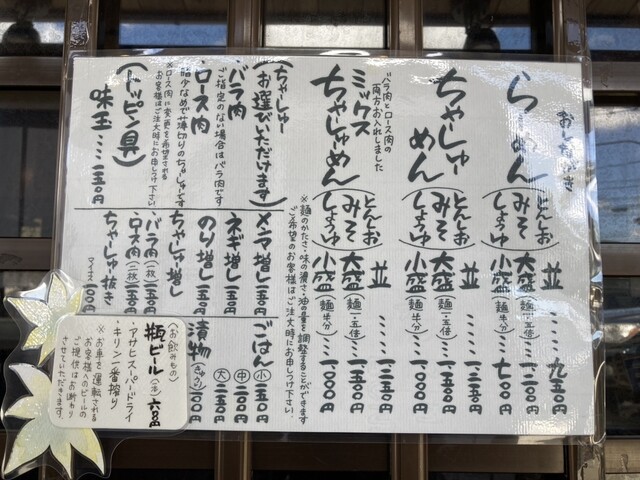 おしながき
らーめん
とんしお
みそ
しょうゆ
並………九五〇円
大盛(麺一・五倍)
小盛(麺半分)…七〇〇円
ちゃーしゅーめん
とんしお
みそ
しょうゆ
並
大盛(麺一・五倍)
小盛(麺半分)
バラ肉とロース肉の
両方お入れしました
ミックス
ちゃーしゅーめん
とんしお
みそ
しょうゆ
並
大盛(麺一・五倍)
小盛(麺半分)
※麺のかたさ・味の濃さ・油の量を調整することができます
ご希望のお客様はご注文時にお申しつけ下さい。
(ちゃーしゅー
お選びいただけます)
・バラ肉
ご指定のない場合はバラ肉です
・ロース肉
脂少なめで薄切りのちゃーしゅーです
※ロース肉に変更を希望される
お客様はご注文時にお申し付け下さい。
(トッピング)
味玉…一五〇円
メンマ増し一五〇円
ネギ増し一五〇円
のり増し一五〇円
ちゃーしゅー増し
・バラ肉(一枚)一五〇円
・ロース肉(二枚)一五〇円
ちゃーしゅー抜き
マイナス一〇〇円
ごはん(小)一五〇円
(中)二〇〇円
(大)二五〇円
漬物(きゅうり)
(お飲みもの)
瓶ビール(中)六〇〇円
・アサヒスーパードライ
・キリン一番搾り
※お車を運転される
お客様へのビールの
ご提供はお断わり
させていただきます。